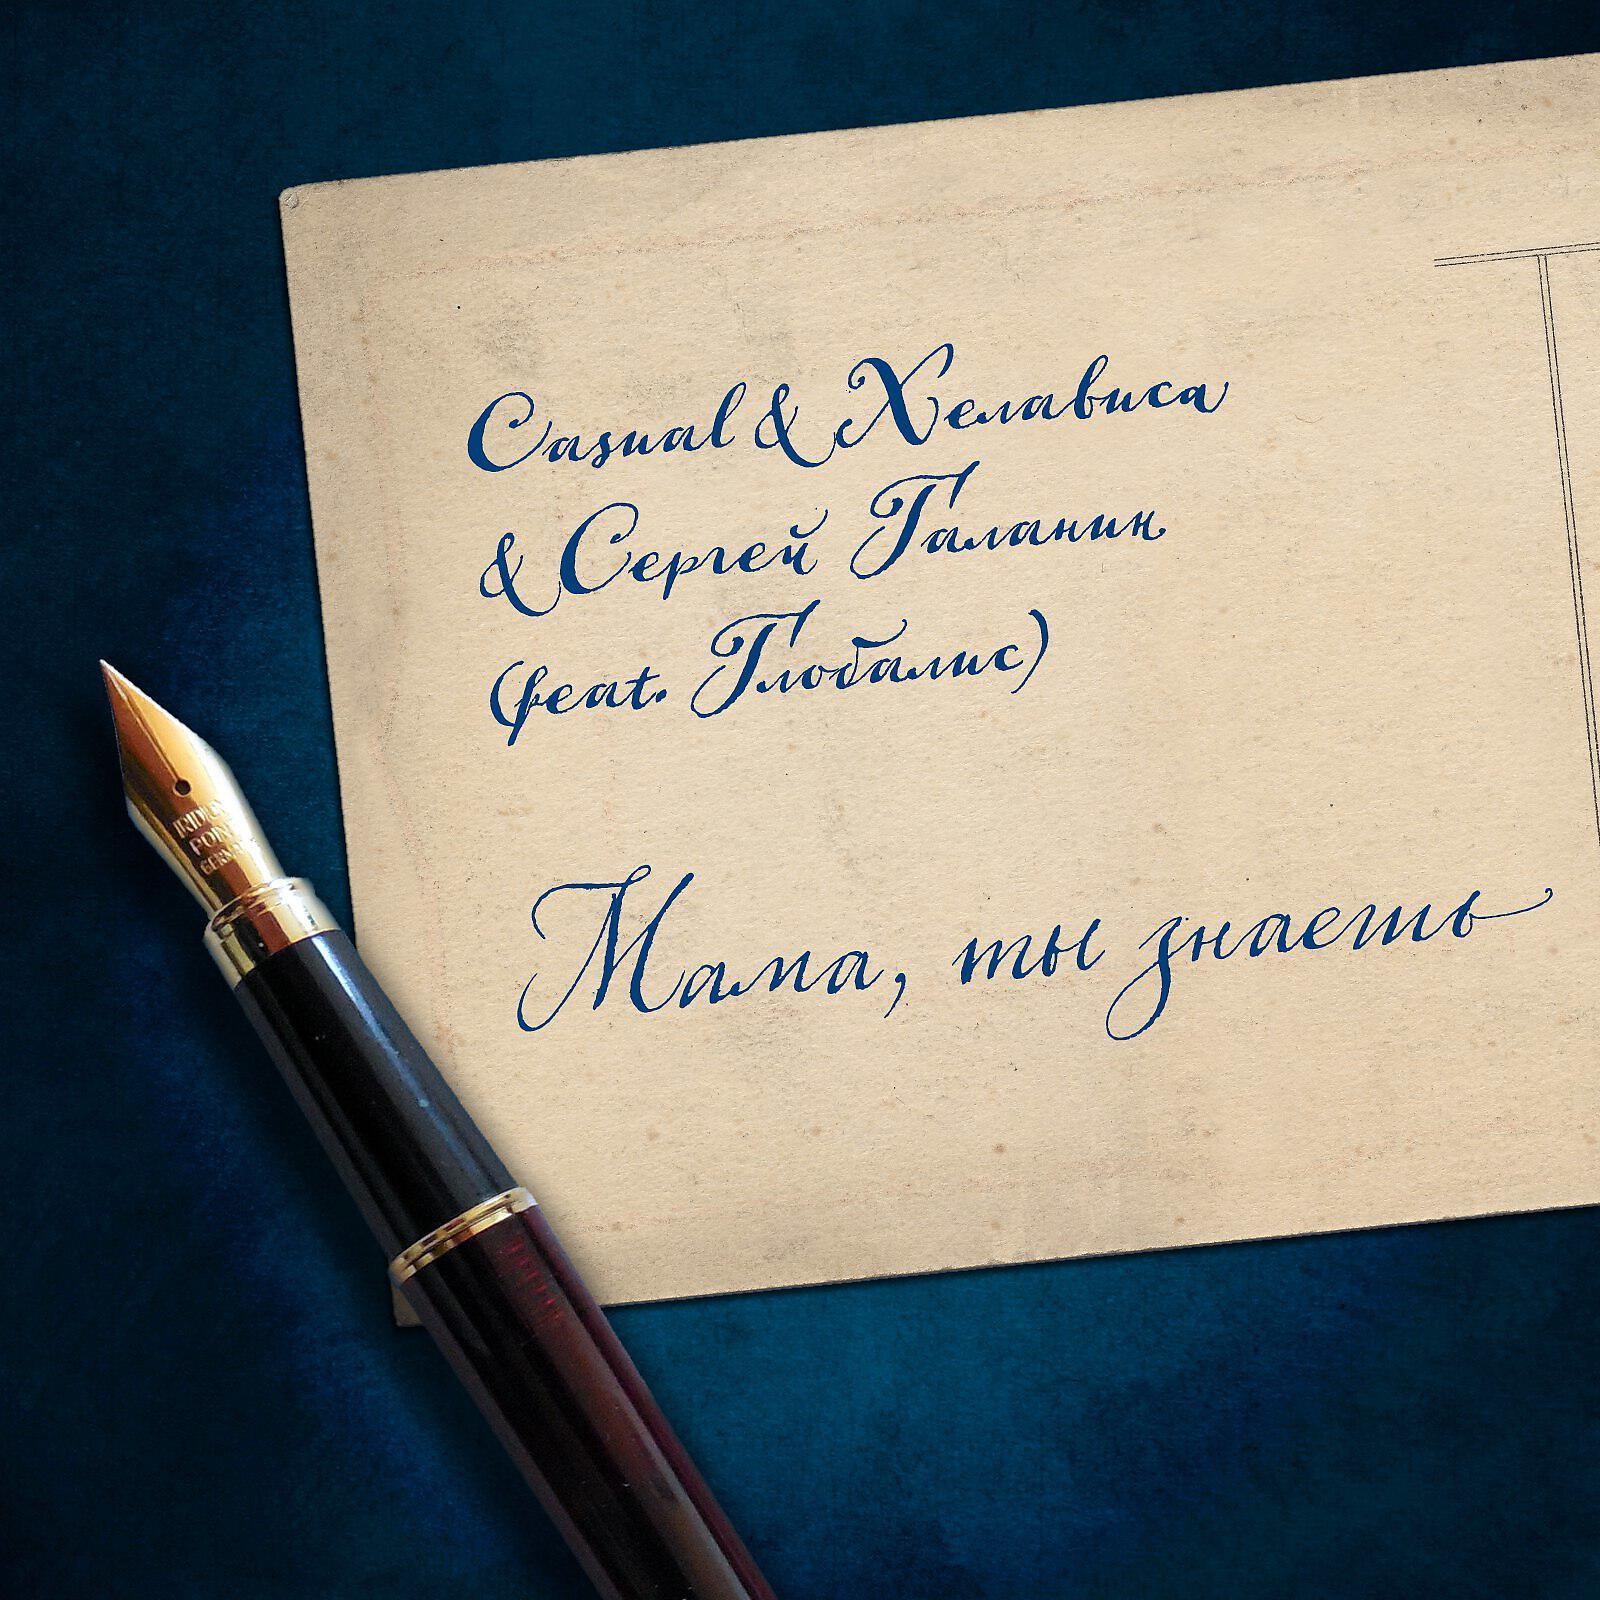 Casual & Хелависа
& Сергей Галанин
(feat. Глобалис)
Мама, ты знаешь
IRIDIUM
POINT
GERMANY